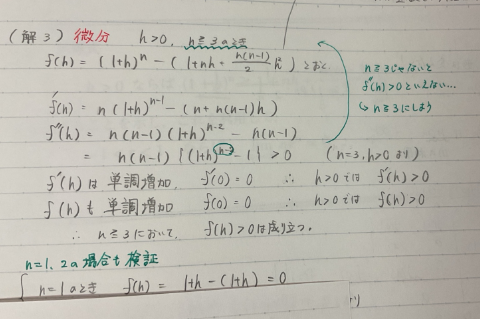 (解3) 微分 h>0, n≧3のとき
f(h) = (1+h)^n - (1+nh+ n(n-1)/2 h²) とおく.
f'(h) = n(1+h)^{n-1} - (n+n(n-1)h)
f''(h) = n(n-1)(1+h)^{n-2} - n(n-1)
= n(n-1){(1+h)^{n-2} - 1} > 0 (n≧3, h>0 より)
n≧3じゃないと
f''(h)>0といえない…
↳ n≧3にしよう
f'(h) は 単調増加. f'(0) = 0 ∴ h>0では f'(h)>0
f(h) も 単調増加 f(0) = 0 ∴ h>0では f(h)>0
∴ n≧3において, f(h)>0は成り立つ。
n=1, 2の場合も検証
n=1のとき f(h) = 1+h-(1+h) = 0